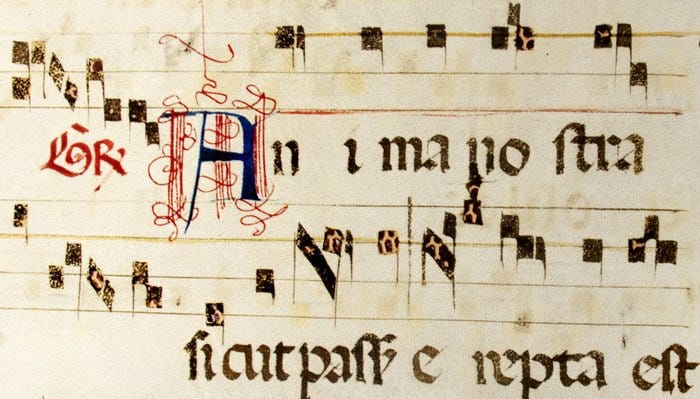 An i ma no stra
sicut pass e repta est